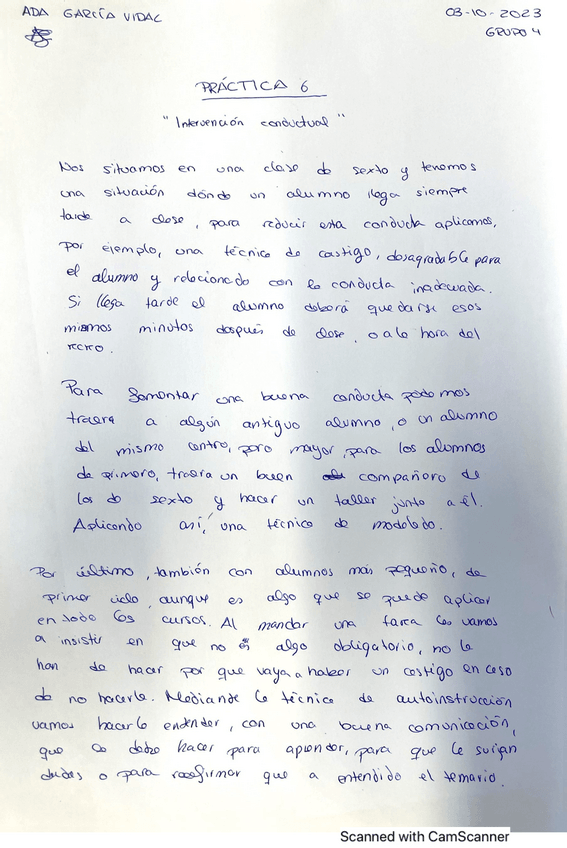 ADA GARCÍA VIDAL
03-10-2023
GRUPO 4
PRÁCTICA 6
"Intervención conductual"
Nos situamos en una clase de sexto y tenemos
una situación dónde un alumno llega siempre
tarde a clase, para reducir esta conducta aplicamos,
por ejemplo, una técnica de castigo, desagradable para
el alumno y relacionado con la conducta inadecuada.
Si llega tarde el alumno deberá quedarse esos
mismos minutos después de clase, o a la hora del
recreo.
Para fomentar una buena conducta podemos
traera a algún antiguo alumno, o un alumno
del mismo centro, pero mayor, para los alumnos
de primero, traera un buen compañero de
los de sexto y hacer un taller junto a él.
Aplicando así, una técnica de modelado.
Por último, también con alumnos más pequeño, de
primer ciclo, aunque es algo que se puede aplicar
en todo los cursos. Al mandar una tarea les vamos
a insistir en que no es algo obligatorio, no la
han de hacer por que vaya a haber un castigo en caso
de no hacerla. Mediande la técnica de autoinstrucción
vamos hacerle entender, con una buena comunicación,
que se debe hacer para aprender, para que le surjan
dudas o para reafirmar que a entendido el temario.
Scanned with CamScanner